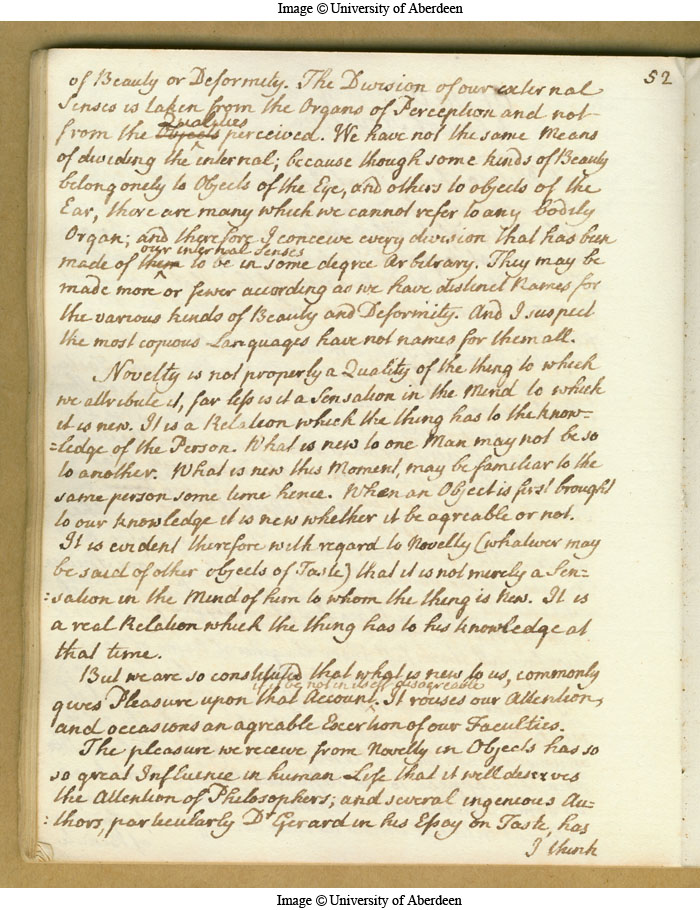 Image © University of Aberdeen
52
of Beauty or Deformity. The Division of our external
Senses is taken from the Organs of Perception and not
Qualities
from the Objects perceived. We have not the same Means
of dividing the internal; because though some kinds of Beauty
belong onely to Objects of the Eye, and others to objects of the
Ear, there are many which we cannot refer to any bodily
Organ; and therefore I conceive every division that has been
our internal Senses
made of them to be in some degree Arbitrary. They may be
made more or fewer according as we have distinct Names for
the various kinds of Beauty and Deformity. And I suspect
the most copious Languages have not names for them all.
Novelty is not properly a Quality of the thing to which
we attribute it, far less is it a Sensation in the Mind to which
it is new. It is a Relation which the thing has to the know=
=ledge of the Person. What is new to one Man may not be so
to another. What is new this Moment, may be familiar to the
same person some time hence. When an Object is first brought
to our knowledge it is new whether it be agreable or not.
It is evident therefore with regard to Novelty (whatever may
be said of other objects of Taste) that it is not merely a Sen=
:sation in the Mind of him to whom the thing is New. It is
a real Relation which the thing has to his knowledge at
that time.
But we are so constituted that what is new to us, commonly
if it be not in itself disagreeable
gives Pleasure upon that Account. It rouses our Attention,
and occasions an agreable Exertion of our Faculties.
The pleasure we receive from Novelty in Objects has so
so great Influence in human Life that it well deserves
the Attention of Philosophers; and several ingenious Au=
:thors, particularly Dr Gerard in his Essay on Taste, has
I think
Image © University of Aberdeen